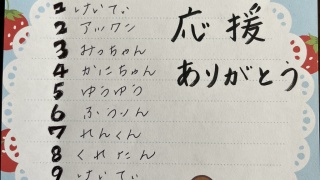 1 けいてぃ
2 アックン
3 みっちゃん
4 かにちゃん
5 ゆうゆう
6 ふうりん
7 れんくん
8 くれたん
9 けいてぃ
応援
ありがとう